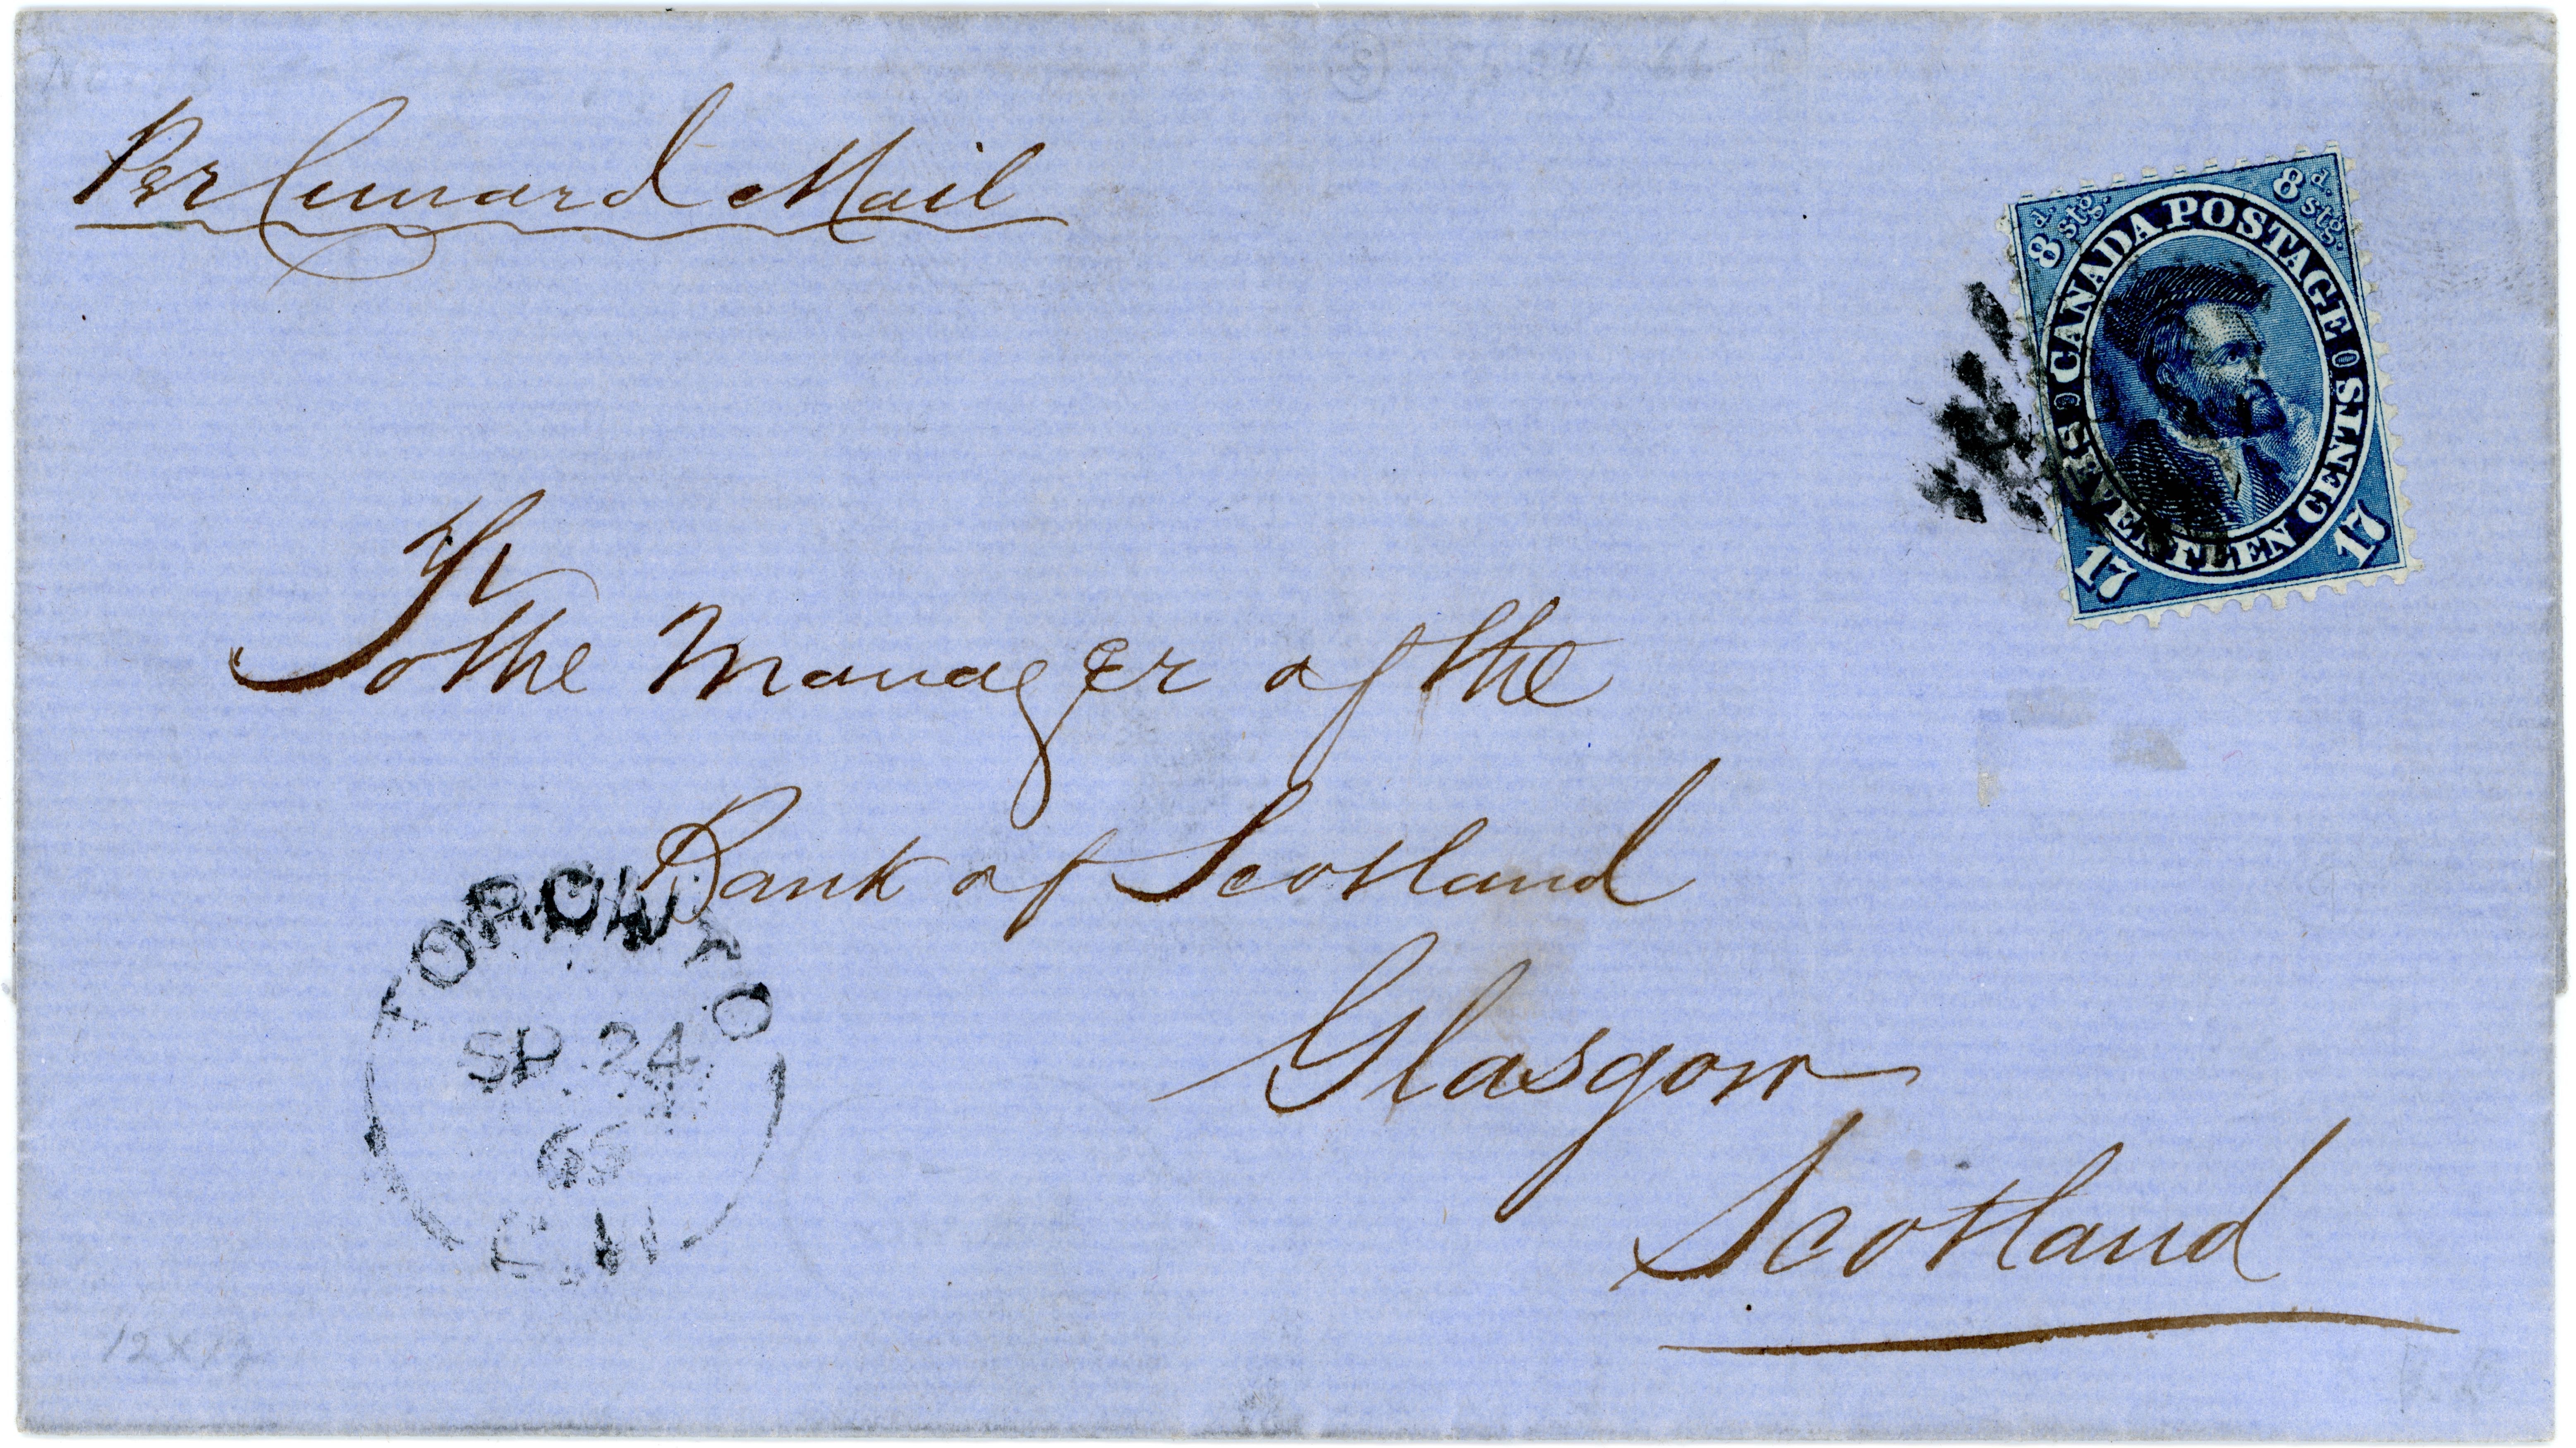 Per Cunard Mail
8d. stg. 8d. stg.
CANADA POSTAGE
SEVENTEEN CENTS
17 17
To the Manager of the
Bank of Scotland
Glasgow
Scotland
TORONTO
SP 24
65
C.W.
12x12